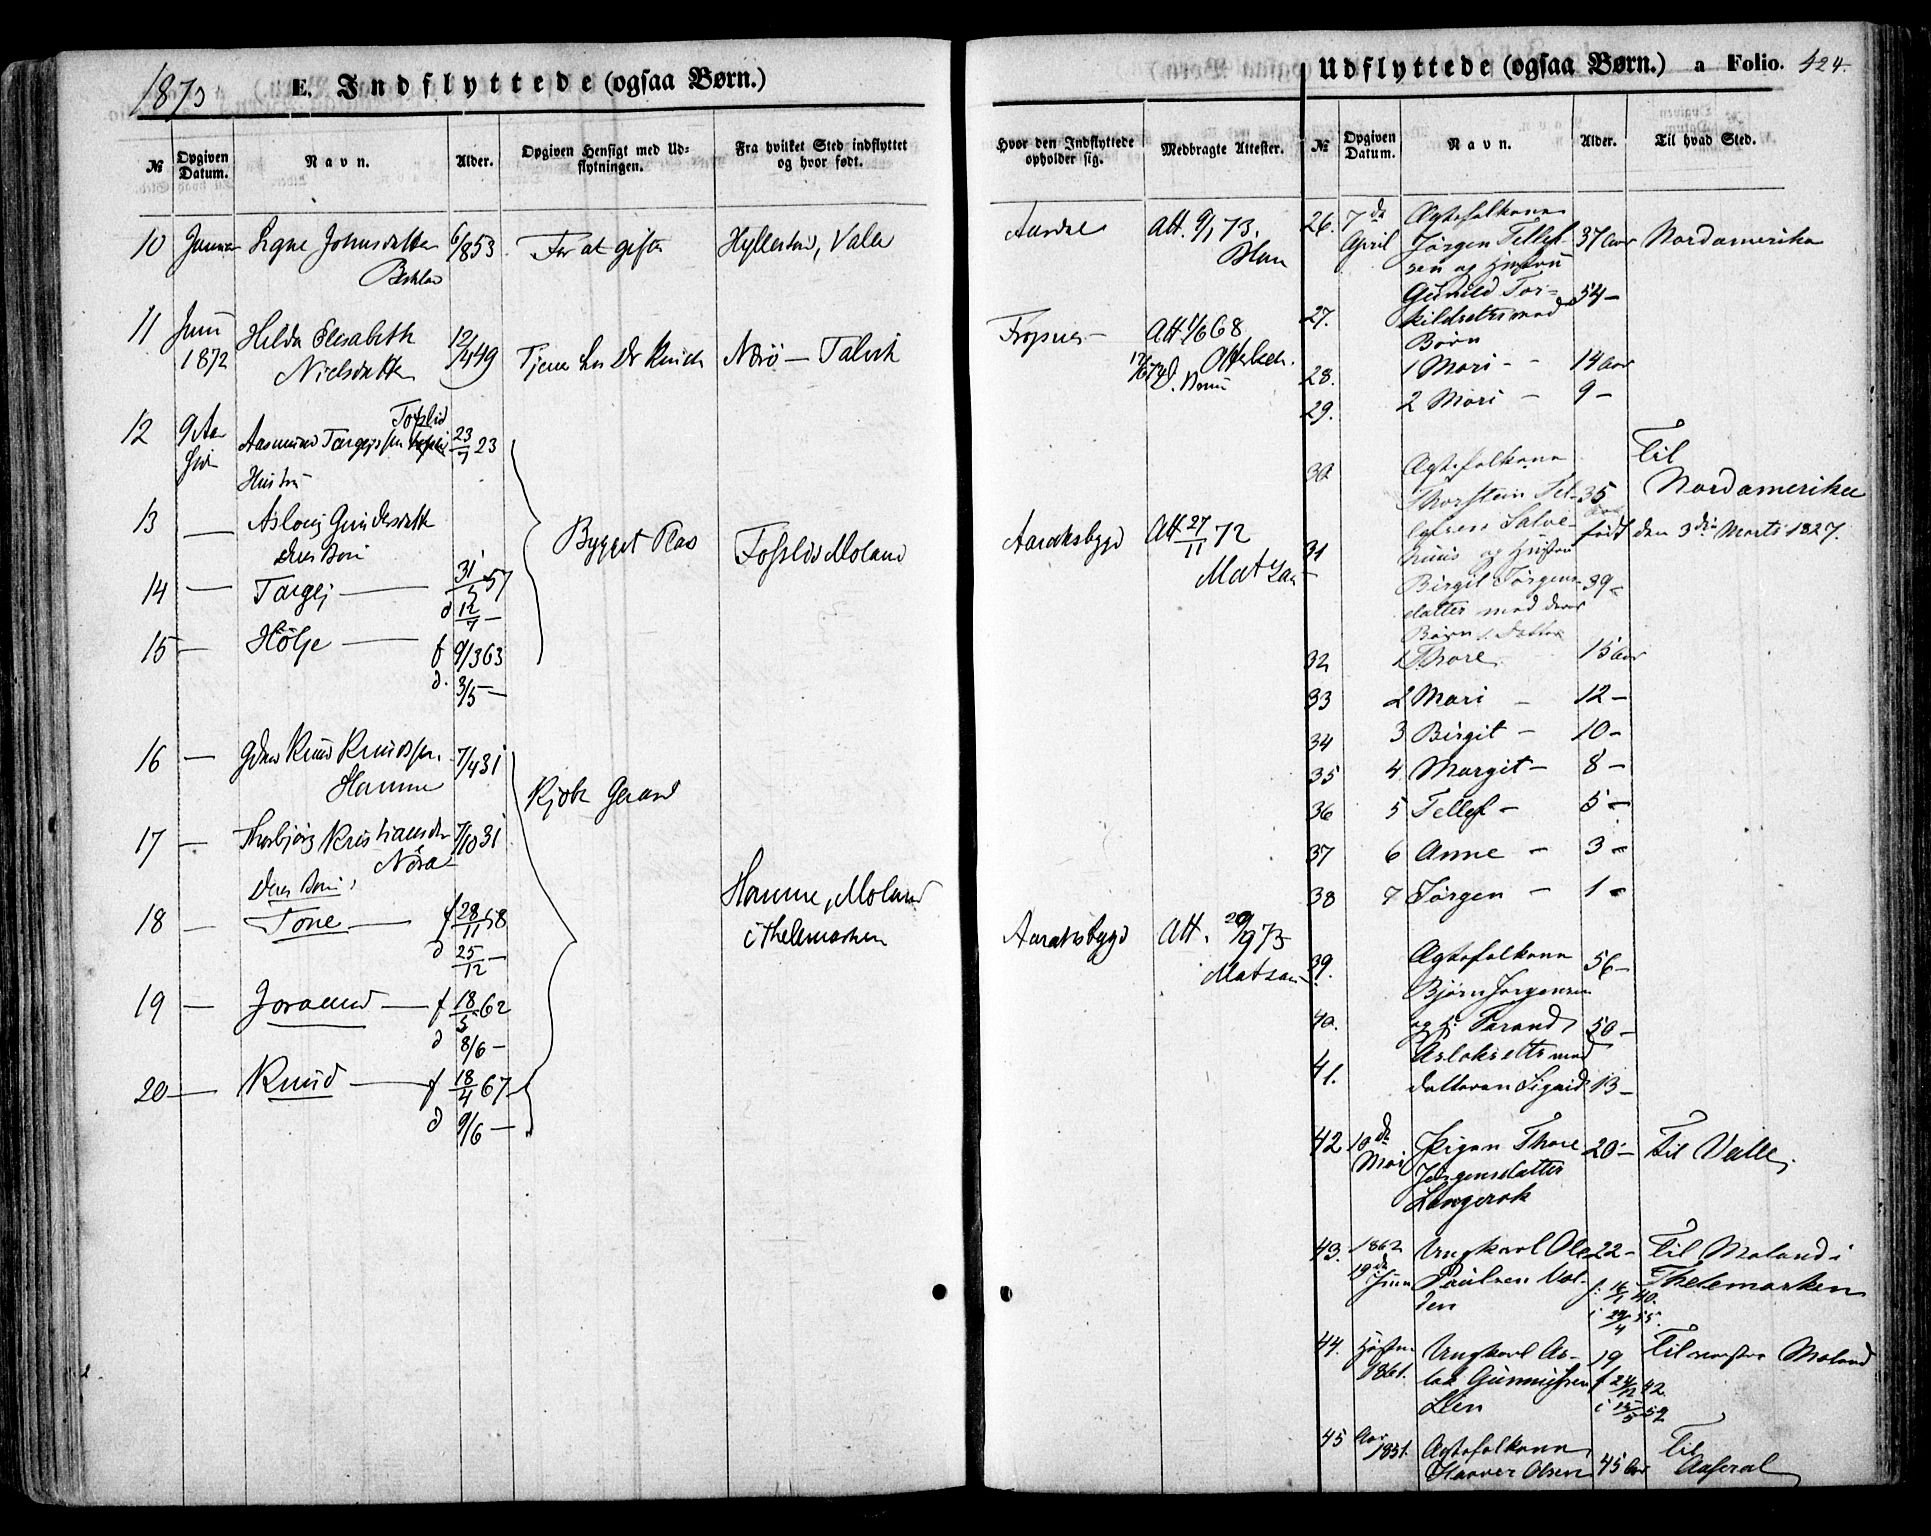 1873
E. Indflyttede (ogsaa Børn.)
№ Opgiven Datum. Navn. Alder. Opgiven Hensigt med Udflytningen. Fra hvilket Sted indflyttet og hvor født.
10 Januar Signe Johnsdatter 6/8 53 For at gifte Hyllestad, Valle
11 Juni Hilda Elisabeth 12/ 49 Tjene hos Dr
1872 Nielsdatter Talvik
12 9 Aasmund Targejssen Fosslid 23/7 23
Hustru
13 — Aslaug Gundersdatter
deres Børn
Bygget Plas Fosslid Moland
14 — Targej — 31/5 57
d 12/7 —
15 — Hölje — f 9/3 63
d. 3/5 —
16 — Gdm Knud Knudssen 7/4 31
Homme
Kjøbt Gaard
17 — Thorbjörg Kristiansdr 7/10 31
Nöra
deres Børn,
Homme, Moland
18 — Tone — f 28/11 58
i Thelemarken
d 25/12 —
19 — Joramd — f 18/5 62
d 8/6 —
20 — Knud — f 18/4 67
d 9/6 —
Udflyttede (ogsaa Børn.) a Folio. 424.
Hvor den Indflyttede opholder sig. Medbragte Attester. № Opgiven Datum. Navn. Alder. Til hvad Sted.
Att. 9/1 73.
Att 68
Aaraksbygd Att 27/11 72
Aaraksbygd Att. 73
26. 7de April Ægtefolkene
Jørgen Tellef- 37 Aar Nordamerika
sen og Hustru
27. Gunild Tor- 54 —
kildsdtr med
Børn
28. 1 Mari — 14 Aar
29. 2 Mari — 9 —
30. Ægtefolkene Til
Thorstein Tel- 35 Nordamerika
lefsen født den 3die Marts 1827.
31 og Hustru
Birgit Jørgens- 39 —
datter med deres
Børn
32 1 Thore 15 Aar
33 2 Mari — 12 —
34 3 Birgit — 10 —
35 4 Margit — 8 —
36 5 Tellef — 5 —
37 6 Anne — 3 —
38 7 Jørgen — 1 —
39. Ægtefolkene 56 —
Bjørn Jørgensen
40. og H. Tarand 50 —
Aslaksdtr med
41. datteren Sigrid 13 —
42 10de Mai Pigen Thore 20 — Til Valle
Jørgensdatter
Langerak
43. 1862 Ungkarl Ole 22 — Til Moland i
19de Juni Paulsen Vol- f: 16/1 40. Thelemarken
den i 29/4 55.
44. Høsten Ungkarl As- 19 Til Moland
1861. lak Gunnufsen f 24/12 42
Lien i 15/5 59
45 Aar 1851. Ægtefolkene Til
Haaver Olsen 45 Aar Aaseral